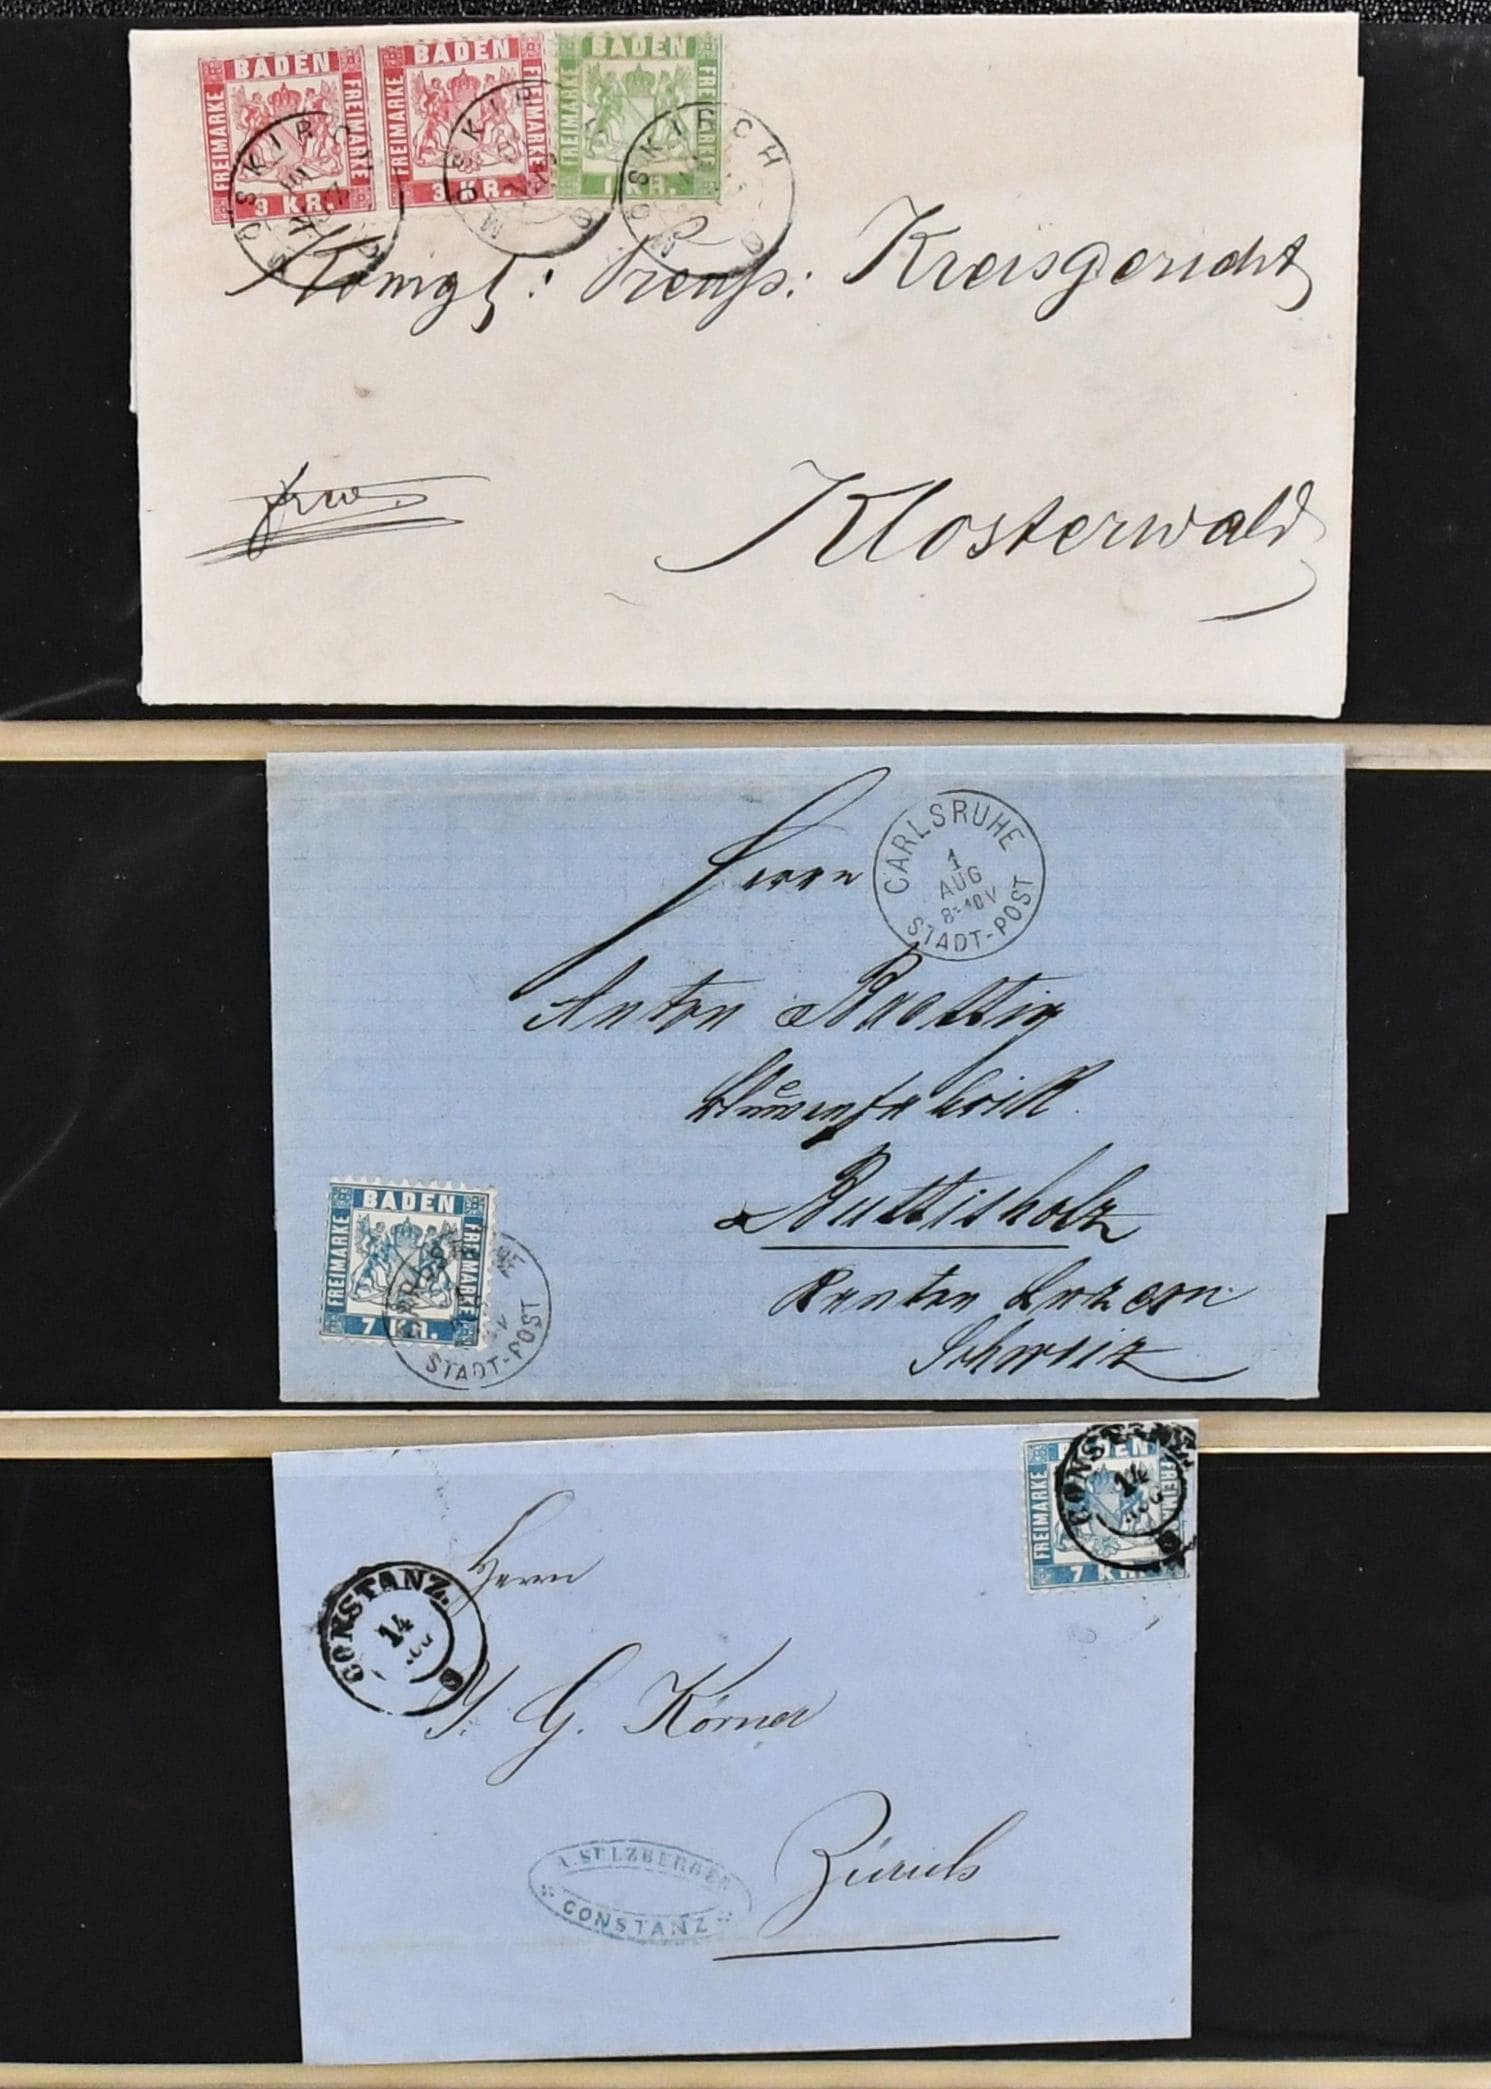 BADEN
FREIMARKE
FREIMARKE
3 KR.
BADEN
FREIMARKE
FREIMARKE
3 KR.
BADEN
FREIMARKE
FREIMARKE
1 KR.
MÖSKIRCH
Königl: Preuß: Kreisgericht
Klosterwald
Herrn
CARLSRUHE
1
AUG
8-10V
STADT-POST
Anton
Buttisholz
Kanton Luzern
Schweiz
BADEN
FREIMARKE
FREIMARKE
7 KR.
STADT-POST
BADEN
FREIMARKE
7 KR.
CONSTANZ
14
Herrn
CONSTANZ.
14
J. G. Körner
Zürich
A. SULZBERGER
CONSTANZ